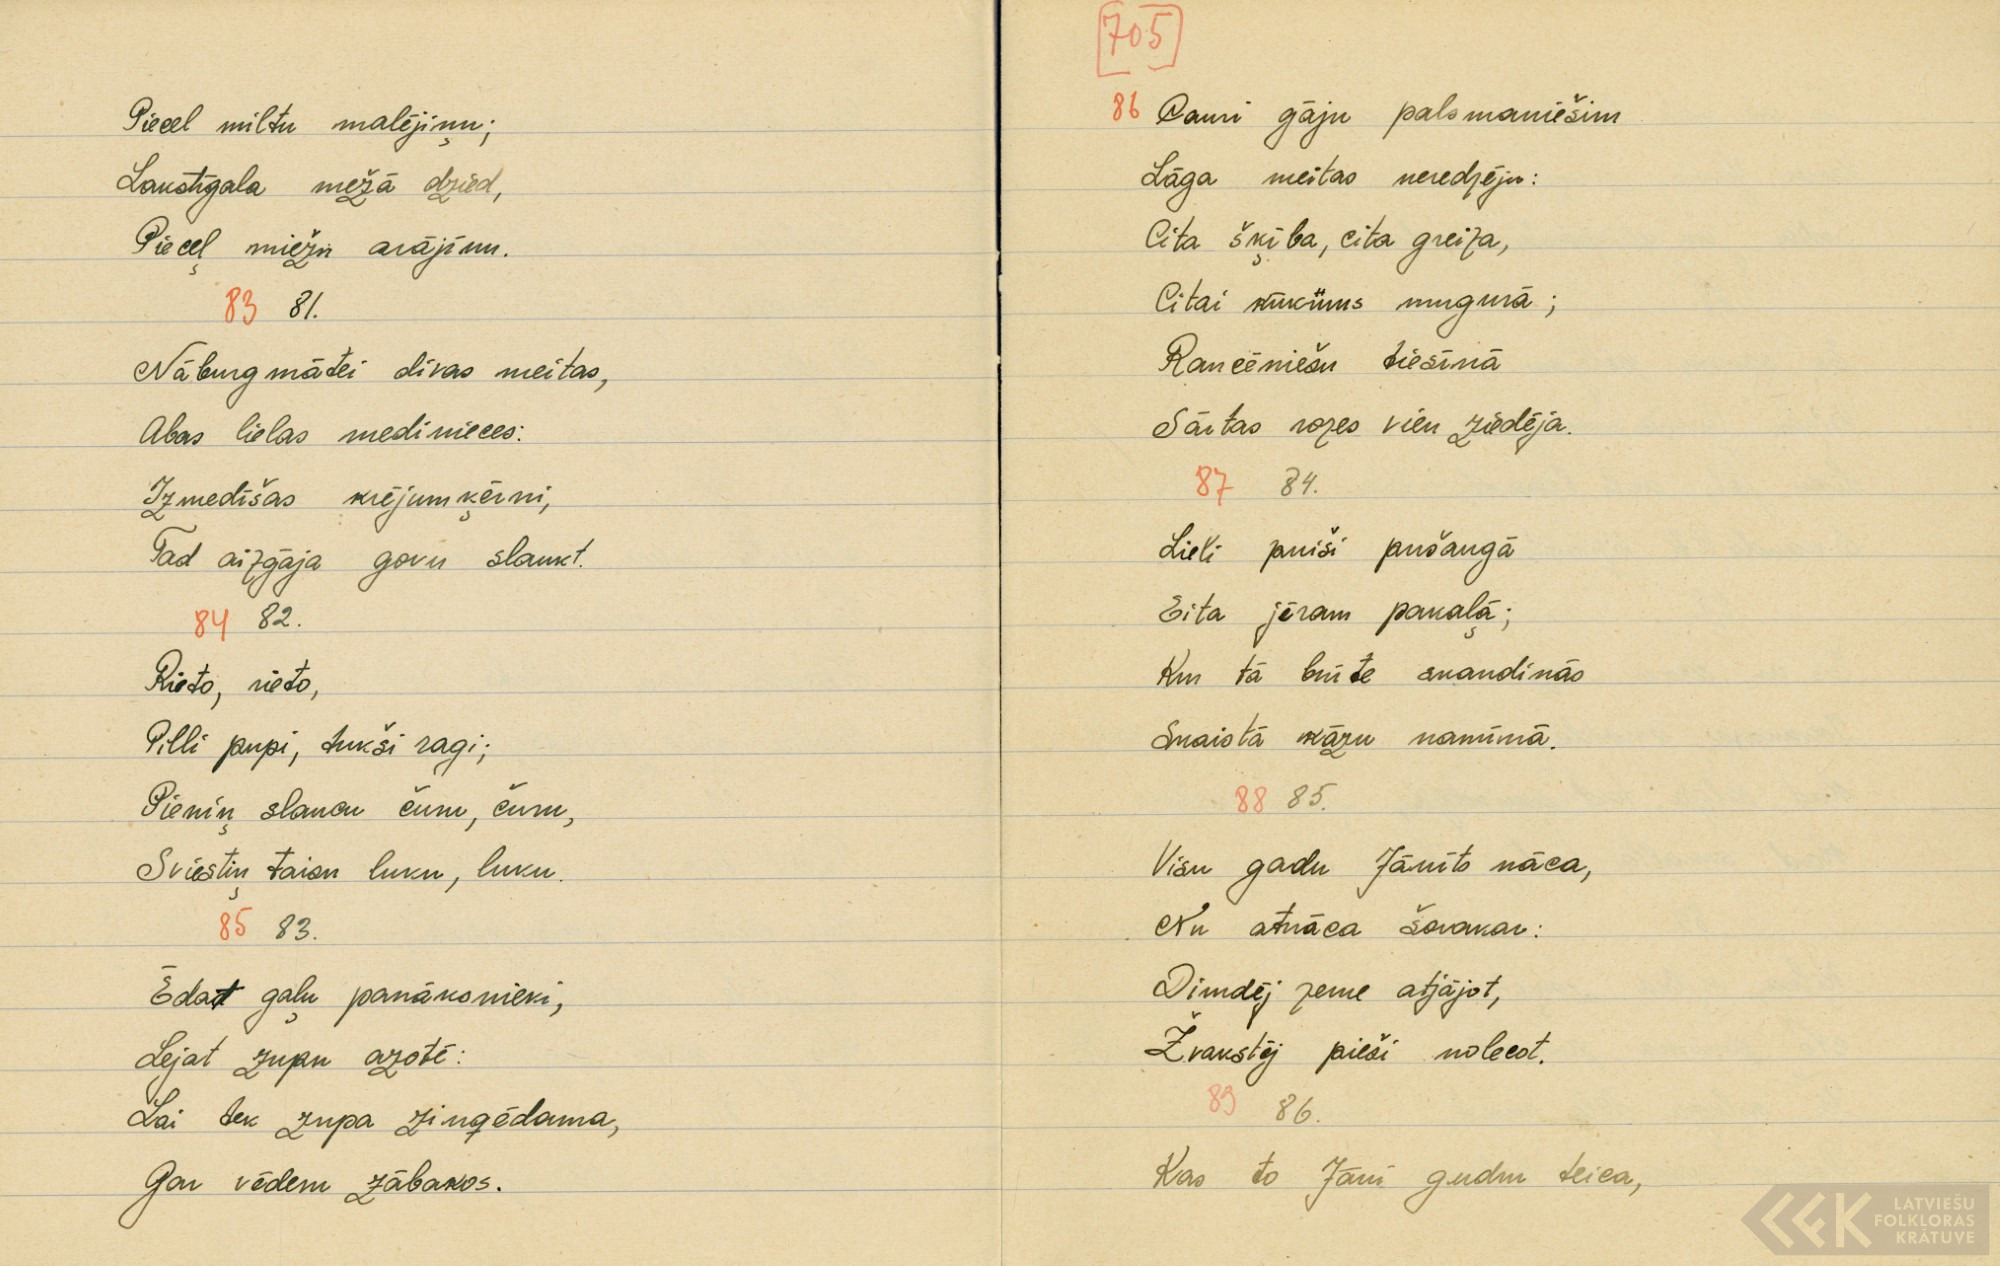 Piecel miltu malējiņu;
Lakstīgala mežā dzied,
Pieceļ miežu arājīnu.
83 81.
Nāburgmātei divas meitas,
Abas lielas medinieces:
Izmedīšas krējumķērni,
Tad aizgāja govu slaukt.
84 82.
Rieto, rieto,
Pilli pupi, tukši ragi;
Pieniņ slaucu čuru, čuru,
Sviestiņ taisu luku, luku.
85 83.
Ēdat gaļu panāksnieki,
Lejat zupu azotē:
Lai tek zupa zinģēdama,
Gar vēderu zābakos.
[705]
86 Cauri gāju palsmaniešim
Lāga meitas neredzēju:
Cita šķība, cita greiza,
Citai kūkums mugurā;
Rancēniešu tiesīnā
Sārtas rozes vien ziedēja.
87 84.
Lieli puiši pušaugā
Eita jēram pakaļā;
Kur tā būte skandinās
Skaistā kāzu namīnā.
88 85.
Visu gadu Jānīts nāca,
Nu atnāca šovakar:
Dimdēj zeme atjājot,
Žvakstēj pieši nolecot.
89 86.
Kas to Jāni gudru teica,
LATVIEŠU
FOLKLORAS
KRĀTUVE